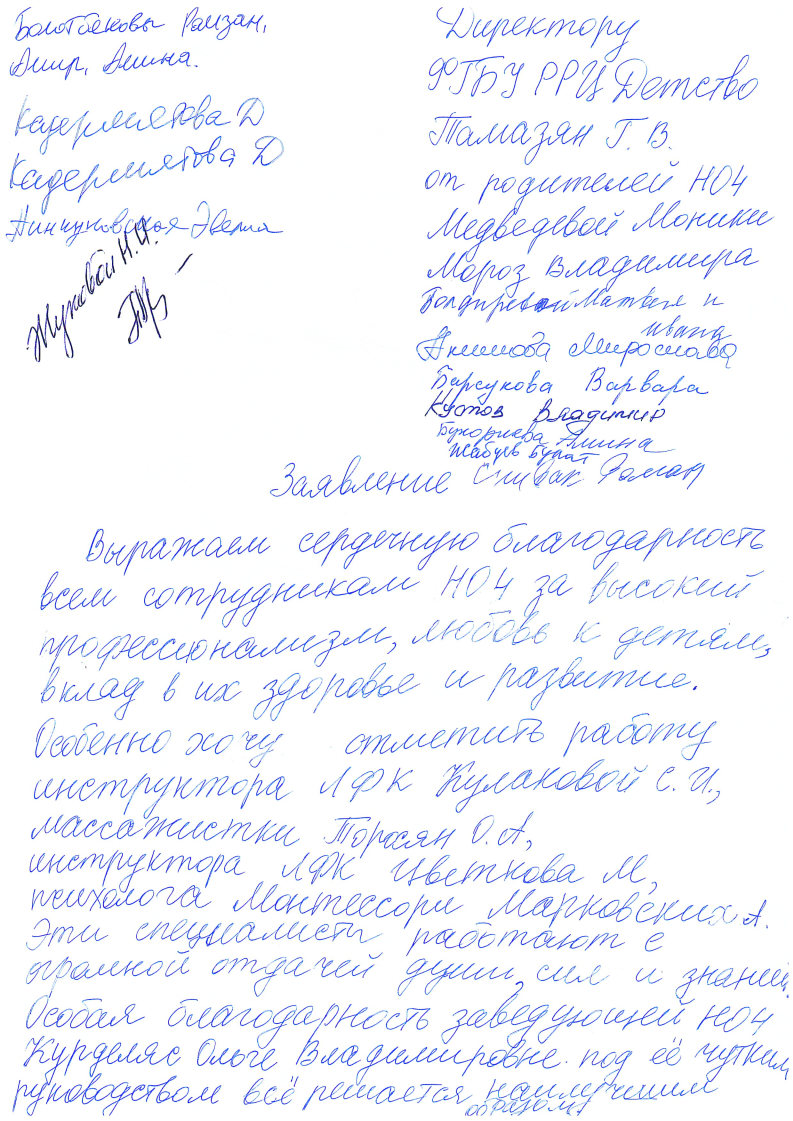 Болотбековы Рамзан,
Амир, Амина.
Кадермятова Д
Кадермятова Д
Эвелина
Жуковой Н.И.
Директору
ФГБУ РРЦ Детство
Тамазян Г. В.
от родителей НО4
Медведевой Моники
Мороз Владимира
Матвея и
Ивана
Акимова Мирослава
Барсукова Варвара
Кустов Владимир
Амина
Булат
Спивак Роман
Заявление
Выражаем сердечную благодарность
всем сотрудникам НО4 за высокий
профессионализм, любовь к детям,
вклад в их здоровье и развитие.
Особенно хочу отметить работу
инструктора ЛФК Кулаковой С. И.,
массажистки Торосян О. А,
инструктора ЛФК Цветкова М,
психолога Монтессори Марковских А.
Эти специалисты работают с
огромной отдачей души, сил и знаний.
Особая благодарность заведующей НО4
Курделяс Ольге Владимировне. под её чутким
руководством всё решается наилучшим
образом!